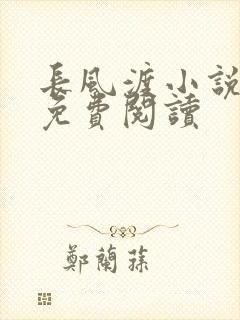 長風渡小說
免費閱讀
鄭蘭蓀